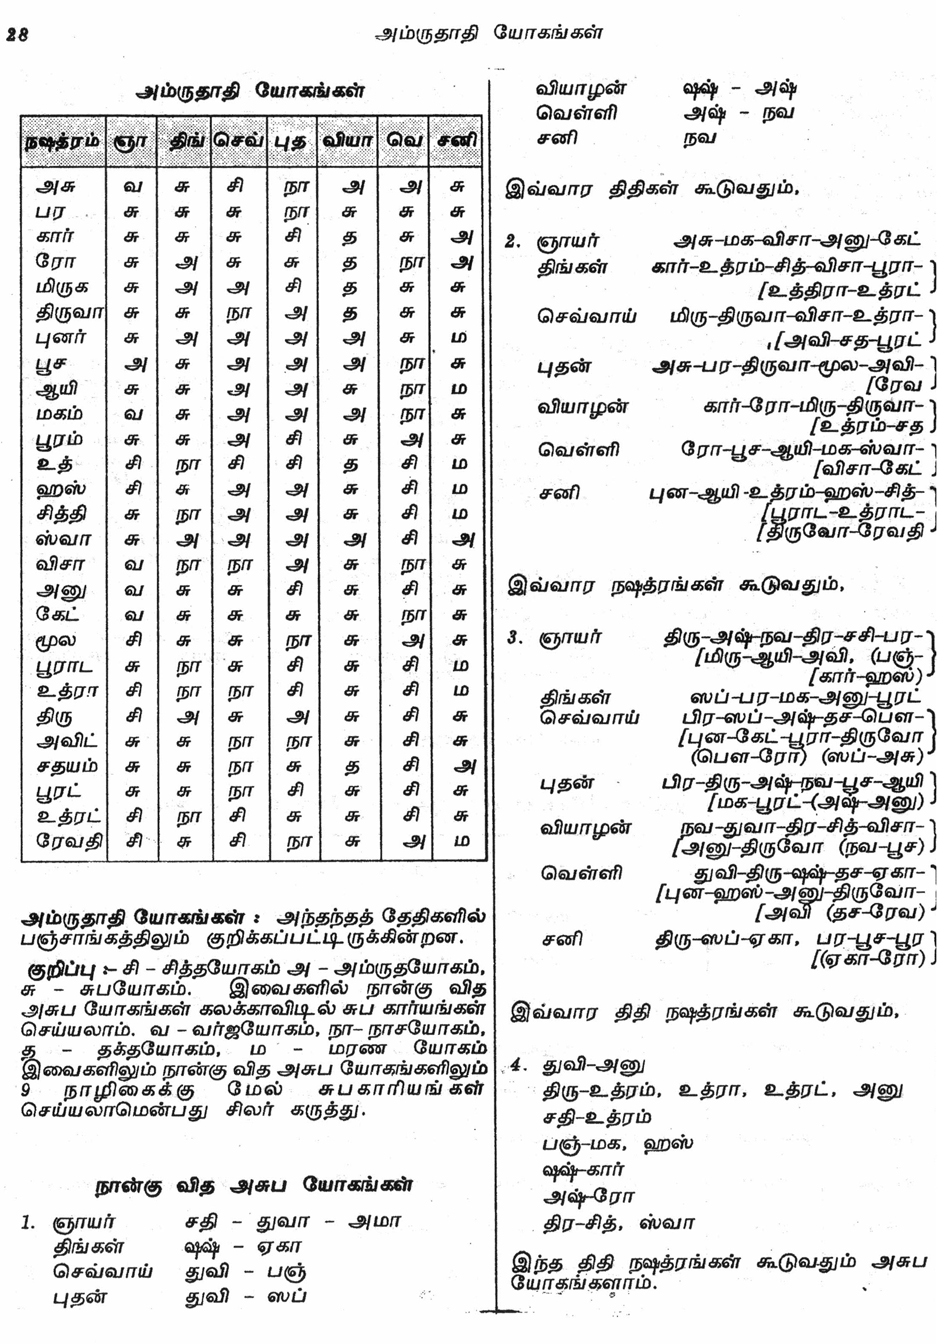 28
அம்ருதாதி யோகங்கள்
அம்ருதாதி யோகங்கள்
நஷத்ரம் ஞா திங் செவ் புத வியா வெ சனி
அசு வ சு சி நா அ அ சு
பர சு சு சு நா சு சு சு
கார் சு சு சு சி த சு அ
ரோ சு அ சு சு த நா அ
மிருக சு அ அ சி த சு சு
திருவா சு சு நா அ த சு சு
புனர் சு அ அ அ அ சு ம
பூச அ சு அ அ அ நா சு
ஆயி சு சு அ அ சு நா ம
மகம் வ சு அ அ அ நா சு
பூரம் சு சு அ சி சு அ சு
உத் சி நா சி சி த சி ம
ஹஸ் சி சு அ அ சு சி ம
சித்தி சு நா அ அ சு சி ம
ஸ்வா சு அ அ அ அ சி அ
விசா வ நா நா அ சு நா சு
அனு வ சு சு சி சு சி சு
கேட் வ சு சு சு சு நா சு
மூல சி சு சு நா சு அ சு
பூராட சு நா சு சி சு சி ம
உத்ரா சி நா நா சி சு சி ம
திரு சி அ சு அ சு சி சு
அவிட் சு சு நா நா சு சி சு
சதயம் சு சு நா சு த சி அ
பூரட் சு சு நா சி சு சி சு
உத்ரட் சி நா சி சு சு சி சு
ரேவதி சி சு சி நா சு அ ம
அம்ருதாதி யோகங்கள் : அந்தந்தத் தேதிகளில்
பஞ்சாங்கத்திலும் குறிக்கப்பட்டிருக்கின்றன.
குறிப்பு :- சி - சித்தயோகம் அ - அம்ருதயோகம்,
சு - சுபயோகம். இவைகளில் நான்கு வித
அசுப யோகங்கள் கலக்காவிடில் சுப கார்யங்கள்
செய்யலாம். வ - வர்ஜயோகம், நா- நாசயோகம்,
த - தக்தயோகம், ம - மரண யோகம்
இவைகளிலும் நான்கு வித அசுப யோகங்களிலும்
9 நாழிகைக்கு மேல் சுபகாரியங்கள்
செய்யலாமென்பது சிலர் கருத்து.
நான்கு வித அசுப யோகங்கள்
1. ஞாயர் சதி - துவா - அமா
திங்கள் ஷஷ் - ஏகா
செவ்வாய் துவி - பஞ்
புதன் துவி - ஸப்
வியாழன் ஷஷ் - அஷ்
வெள்ளி அஷ் - நவ
சனி நவ
இவ்வார திதிகள் கூடுவதும்,
2. ஞாயர் அசு-மக-விசா-அனு-கேட்
திங்கள் கார்-உத்ரம்-சித்-விசா-பூரா-
[உத்திரா-உத்ரட்
செவ்வாய் மிரு-திருவா-விசா-உத்ரா-
[அவி-சத-பூரட்
புதன் அசு-பர-திருவா-மூல-அவி-
[ரேவ
வியாழன் கார்-ரோ-மிரு-திருவா-
[உத்ரம்-சத
வெள்ளி ரோ-பூச-ஆயி-மக-ஸ்வா-
[விசா-கேட்
சனி புன-ஆயி-உத்ரம்-ஹஸ்-சித்-
[பூராட-உத்ராட-
[திருவோ-ரேவதி
இவ்வார நஷத்ரங்கள் கூடுவதும்,
3. ஞாயர் திரு-அஷ்-நவ-திர-சசி-பர-
[மிரு-ஆயி-அவி, (பஞ்-
[கார்-ஹஸ்)
திங்கள் ஸப்-பர-மக-அனு-பூரட்
செவ்வாய் பிர-ஸப்-அஷ்-தச-பௌ-
[புன-கேட்-பூரா-திருவோ
(பௌ-ரோ) (ஸப்-அசு)
புதன் பிர-திரு-அஷ்-நவ-பூச-ஆயி
[மக-பூரட்-(அஷ்-அனு)
வியாழன் நவ-துவா-திர-சித்-விசா-
[அனு-திருவோ (நவ-பூச)
வெள்ளி துவி-திரு-ஷஷ்-தச-ஏகா-
[புன-ஹஸ்-அனு-திருவோ-
[அவி (தச-ரேவ)
சனி திரு-ஸப்-ஏகா, பர-பூச-பூர
[(ஏகா-ரோ)
இவ்வார திதி நஷத்ரங்கள் கூடுவதும்,
4. துவி-அனு
திரு-உத்ரம், உத்ரா, உத்ரட், அனு
சதி-உத்ரம்
பஞ்-மக, ஹஸ்
ஷஷ்-கார்
அஷ்-ரோ
திர-சித், ஸ்வா
இந்த திதி நஷத்ரங்கள் கூடுவதும் அசுப
யோகங்களாம்.